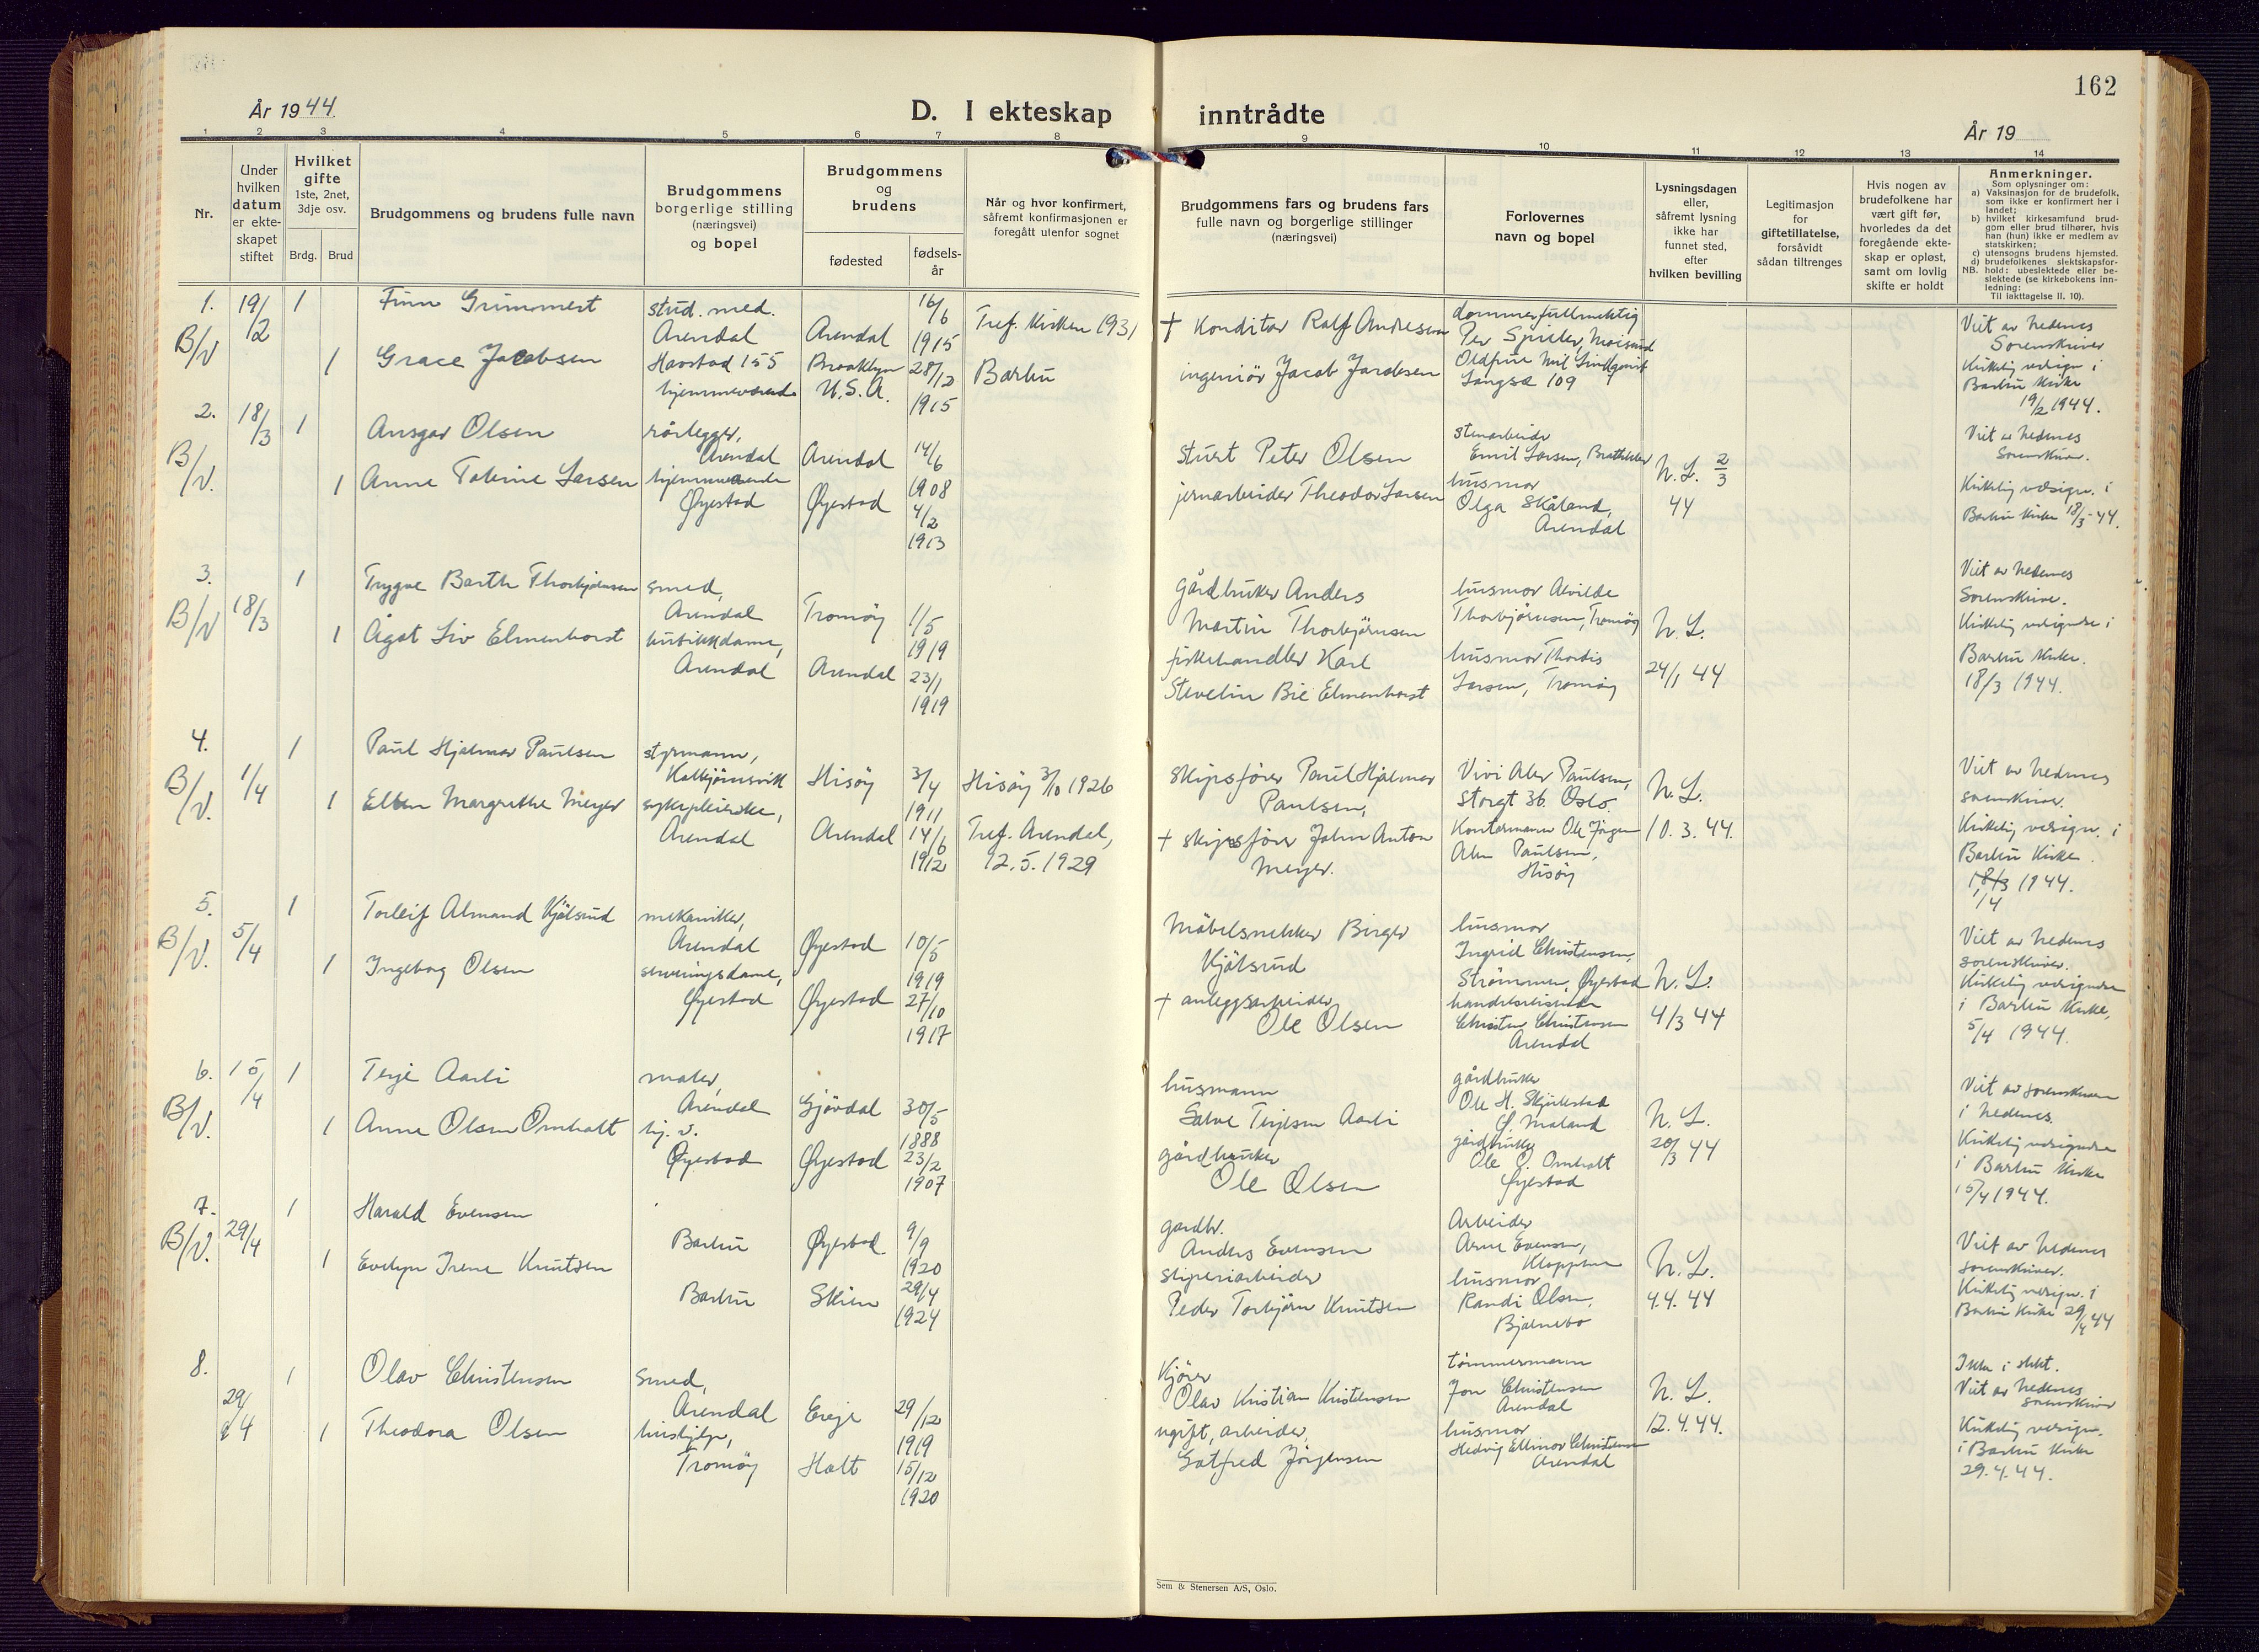 162
År 1944.
D. I ekteskap inntrådte
År 19
1 2 3 4 5 6 7 8 9 10 11 12 13 14
Nr.
Under
hvilken
datum
er ekte-
skapet
stiftet
Hvilket
gifte
1ste, 2net,
3dje osv.
Brdg. Brud
Brudgommens og brudens fulle navn
Brudgommens
borgerlige stilling
(næringsvei)
og bopel
Brudgommens
og
brudens
fødested
fødsels-
år
Når og hvor konfirmert,
såfremt konfirmasjonen er
foregått utenfor sognet
Brudgommens fars og brudens fars
fulle navn og borgerlige stillinger
(næringsvei)
Forlovernes
navn og bopel
Lysningsdagen
eller,
såfremt lysning
ikke har
funnet sted,
efter
hvilken bevilling
Legitimasjon
for
giftetillatelse,
forsåvidt
sådan tiltrenges
Hvis nogen av
brudefolkene har
vært gift før,
hvorledes da det
foregående ekte-
skap er opløst,
samt om lovlig
skifte er holdt
Anmerkninger.
Som oplysninger om:
a) Vaksinasjon for de brudefolk,
som ikke er konfirmert her i
landet;
b) hvilket kirkesamfund brud-
gom eller brud tilhører, hvis
han (hun) ikke er medlem av
statskirken;
c) utensogns brudens hjemsted.
d) brudefolkenes slektskapsfor-
NB. hold: ubeslektede eller be-
slektede (se kirkebokens inn-
ledning:
Til iakttagelse II. 10).
1.
B/V
19/2
1
Finn Grummert
stud. med.
Arendal
Arendal
16/6
1915
Tref. kirken 1931
† Konditor Ralf Andresen
dommerfullmektig
Per Spieler,
Viet av Nedenes
Sorenskriver
1
Grace Jacobsen
Havstad 155
hjemmeværende
Brooklyn
U.S.A.
28/12
1915
Barbu
ingeniør Jacob Jacobsen
Langsæ 109
Kirkelig velsign i
Barbu Kirke
19/2 1944.
2.
B/V.
18/3
1
Ansgar Olsen
rørlegger,
Arendal
Arendal
14/6
1908
stuert Peter Olsen
stenarbeider
Emil Larsen,
N.L. 2/3
44
Viet av Nedenes
Sorenskriver.
1
Anne Tobine Larsen
hjemmeværende
Øyestad
Øyestad
4/2
1913
jernarbeider Theodor Larsen
husmor
Olga Skåland,
Arendal
Kirkelig velsign. i
Barbu Kirke 18/3-44.
3.
B/V
18/3
1
Trygve Barth Thorbjørnsen
smed,
Arendal
Tromøy
1/5
1919
gårdbruker Anders
Martin Thorbjørnsen
husmor Alvilde
Thorbjørnsen, Tromøy
N.L.
24/1 44
Viet av Nedenes
Sorenskriver.
1
Ågot Liv Elmenhorst
butikkdame,
Arendal
Arendal
23/1
1919
fiskehandler Karl
Stevelin Bie Elmenhorst
husmor Thordis
Larsen, Tromøy
Kirkelig velsignelse i
Barbu Kirke.
18/3 1944.
4.
B/V.
1/4
1
Paul Hjalmar Paulsen
styrmann,
Kolbjørnsvik
Hisøy
3/4
1911
Hisøy 3/10 1926
skipsfører Paul Hjalmar
Paulsen,
Vivi Aler Paulsen,
Storgt 36. Oslo
N.L.
10.3.44.
Viet av Nedenes
sorenskriver.
1
Ellen Margrethe Meyer
sykepleierske,
Arendal
Arendal
14/6
1912
Tref. Arendal,
12.5.1929
† skipsfører John Anton
Meyer.
Kontormann Ole Jørgen
Paulsen,
Hisøy
Kirkelig velsign. i
Barbu Kirke.
18/3 1944.
1/4
5.
B/V.
5/4
1
Torleif Almand Kjølsrud
mekaniker,
Arendal
Øyestad
10/5
1919
Møbelsnekker Birger
Kjølsrud
husmor
Ingrid Christensen,
Strømmen, Øyestad
N.L.
4/3 44
Viet av Nedenes
sorenskriver.
1
Ingeborg Olsen
serveringsdame,
Øyestad
Øyestad
27/10
1917
† anleggsarbeider
Ole Olsen
handelsreisende
Christen Christensen
Arendal
Kirkelig velsignelse
i Barbu Kirke,
5/4 1944.
6.
B/V.
15/4
1
Terje Aarli
maler,
Arendal
Gjøvdal
30/5
1888
husmann
Salve Terjesen Aarli
gårdbruker
Ole H. Skjulestad
Ø. Moland
N.L.
20/3 44
Viet av sorenskriveren
i Nedenes.
1
Anne Olsen Omholt
hj. v.
Øyestad
Øyestad
23/2
1907
gårdbruker
Ole Olsen
gårdbruker
Ole O. Omholt
Øyestad
Kirkelig velsignelse
i Barbu Kirke
15/4 1944.
7.
B/V.
29/4
1
Harald Evensen
Barbu
Øyestad
9/9
1920
gardbr.
Anders Evensen
Arbeider
Arne Evensen,
N.L.
4.4.44
Viet av Nedenes
sorenskriver.
1
Evelyn Irene Knutsen
Barbu
Skien
29/4
1924
sliperiarbeider
Peder Torbjørn Knutsen
husmor
Randi Olsen,
Bjørnebo
Kirkelig velsign. i
Barbu Kirke 29/4 44
8.
29/4
1
Olav Christensen
smed,
Arendal
Ereje
29/12
1919
Kjører
Olav Kristian Kristensen
tømmermann
Jon Christensen
Arendal
N.L.
12.4.44.
Ikke i slekt.
Viet av Nedenes
Sorenskriver
1
Theodora Olsen
hushjelp,
Tromøy
Holt
15/12
1920
ugift, arbeider,
Gotfred Jørgensen
husmor
Hedvig Ellinor Christensen
Arendal
Kirkelig velsign.
i Barbu Kirke
29.4.44.
Sem & Stenersen A/S, Oslo.